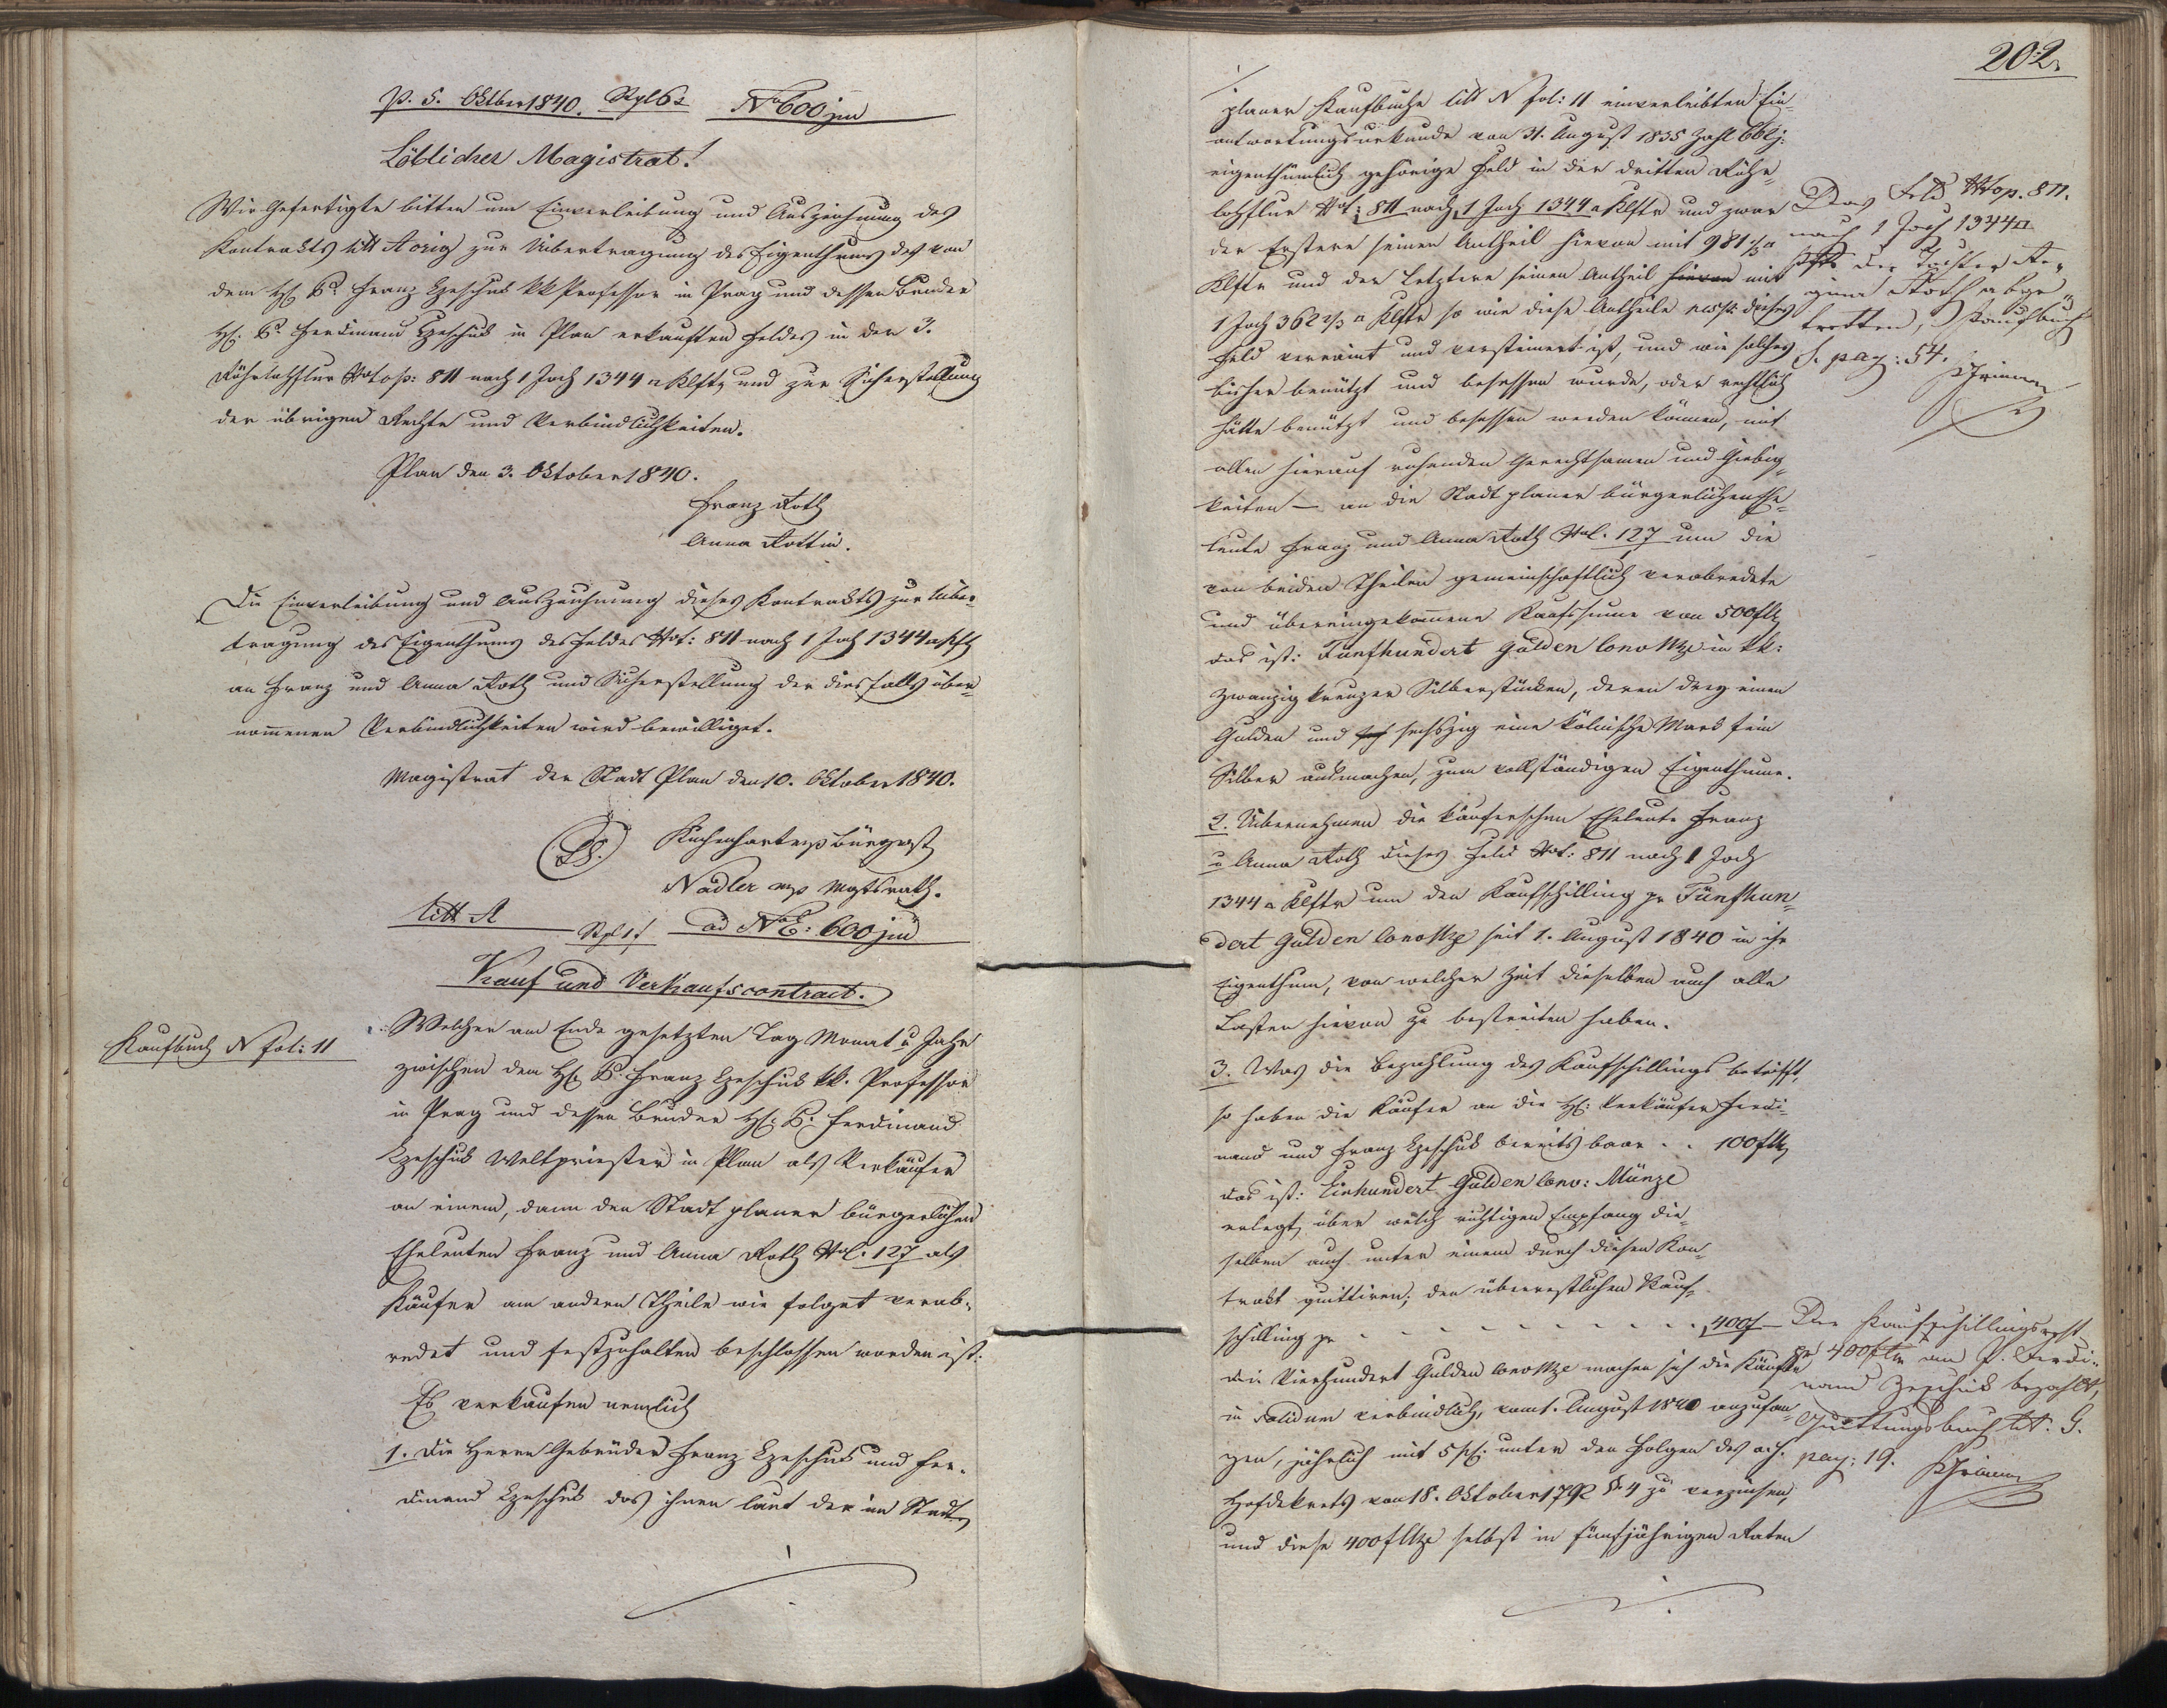 p. 5. Oktber 1840. Stpl 6x No 600 jud
Löblicher Magistrat!
Wir Gefertigte bitten um Einverleibung und Auszeichnung des
Kontrakts litt A orig zur Uibertragung des Eigenthums des von
dem H. P. Franz Czeschik kk Professor in Prag und dessen Bruder
H. P. Ferdinand Czeschik in Plan erkauften Feldes in der 3.
Röhrlohflur Ntop: 811 nach 1 Joch 1344 □ Klftr und zur Sicherstellung
der übrigen Rechte und Verbindlichkeiten.
Plan den 3. Oktober 1840.
Franz Roth
Anna Rottin.
Die Einverleibung und Auszeichnung dieses Kontrakts zur Uiber-
tragung des Eigenthums des Feldes Nt: 811 nach 1 Joch 1344 □ Klft
an Franz und Anna Roth und Sicherstellung der diesfalls über-
nommenen Verbindlichkeiten wird bewilliget.
Magistrat der Stadt Plan den 10. Oktober 1840.
(LS.) Bürgmst
Nadler mp Mgtsrath.
litt A Stpl 1 f ad NE: 600 jud
Kauf und Verkaufscontract.
Kaufbuch N fol: 11
Welcher am Ende gesetzten Tag Monat u Jahr
zwischen dem H. P. Franz Czeschik kk. Professor
in Prag und dessen Bruder H: P: Ferdinand
Czeschik Weltpriester in Plan als Verkäufer
an einem, dann den Stadt planer bürgerlichen
Eheleuten Franz und Anna Roth NC. 127 als
Käufer am andern Theile wie folget verab-
redet und festzuhalten beschlossen worden ist:
Es verkaufen nemlich
1. Die Herrn Gebrüder Franz Czeschik und Fer-
dinand Czeschik das ihnen laut der im Stadt
202.
planer Kaufbuche litt N fol: 11 einverleibten Ein-
antwortungsurkunde von 31. August 1835 Zahl 662 j:
eigenthümlich gehörige Feld in der dritten Röhr-
lohflur Nt: 811 nach 1 Joch 1344 □ Klftr und zwar
der Erstere seinen Antheil hievon mit 981 1/3 □
Klftr und der Letztere seinen Antheil hievon mit
1 Joch 362 2/3 □ Klftr so wie diese Antheile resp: dieses
Feld verraint und versteinert ist, und wie solches
bisher benützt und besessen wurde, oder rechtlich
hätte benützt und besessen werden können, mit
allen hierauf ruhenden Gerechtsamen und Giebig-
keiten — an die Stadt planer bürgerlichen Ehe-
leute Franz und Anna Roth NC. 127 um die
von beiden Theilen gemeinschaftlich verabredete
und übereingekommene Kaufssumme von 500 fl
das ist: Fünfhundert Gulden ConvMze in kk:
zwanzig kreuzer Silberstücken, deren drey einen
Gulden und sechszig eine kölnische Mark fein
Silber ausmachen, zum vollständigen Eigenthume.
2. Uibernehmen die käuferschen Eheleute Franz
u Anna Roth dieses Feld Nt: 811 nach 1 Joch
1344 □ Klftr um den Kaufschilling pr Fünfhun-
dert Gulden ConvMze seit 1. August 1840 in ihr
Eigenthum, von welcher Zeit dieselben auch alle
Lasten hievon zu bestreiten haben.
3. Was die Bezahlung des Kaufschillings betrifft,
so haben die Käufer an die H: Verkäufer Ferdi-
nand und Franz Czeschik bereits baar . . 100 fl
das ist: Einhundert Gulden Conv: Münze
erlegt, über welch richtigen Empfang die-
selben auch unter einem durch diesen Kon-
trakt quittiren; den überrestlichen Kauf-
schilling pr - - - - - - - - - 400 f —
die Vierhundert Gulden ConvMze machen sich die Käufer
in solidum verbindlich, vom 1. August 1840 anzufan-
gen, jährlich mit 5 pC: unter den Folgen des a. h.
Hofdekrets von 18. Oktober 1792 § 4 zu verzinsen,
und diese 400 fl Mze selbst in fünfjährigen Raten
Das Feld Ntop. 811.
nach 1 Joch 1344 □
der Tochter Re-
gina Roth abge-
tretten, Kaufbuch
S. pag: 54.
Der Kaufschillingsrest
pr 400 fl an P. Ferdi-
nand Czeschik bezahlt,
Quittungsbuch lit. G.
pag: 19.